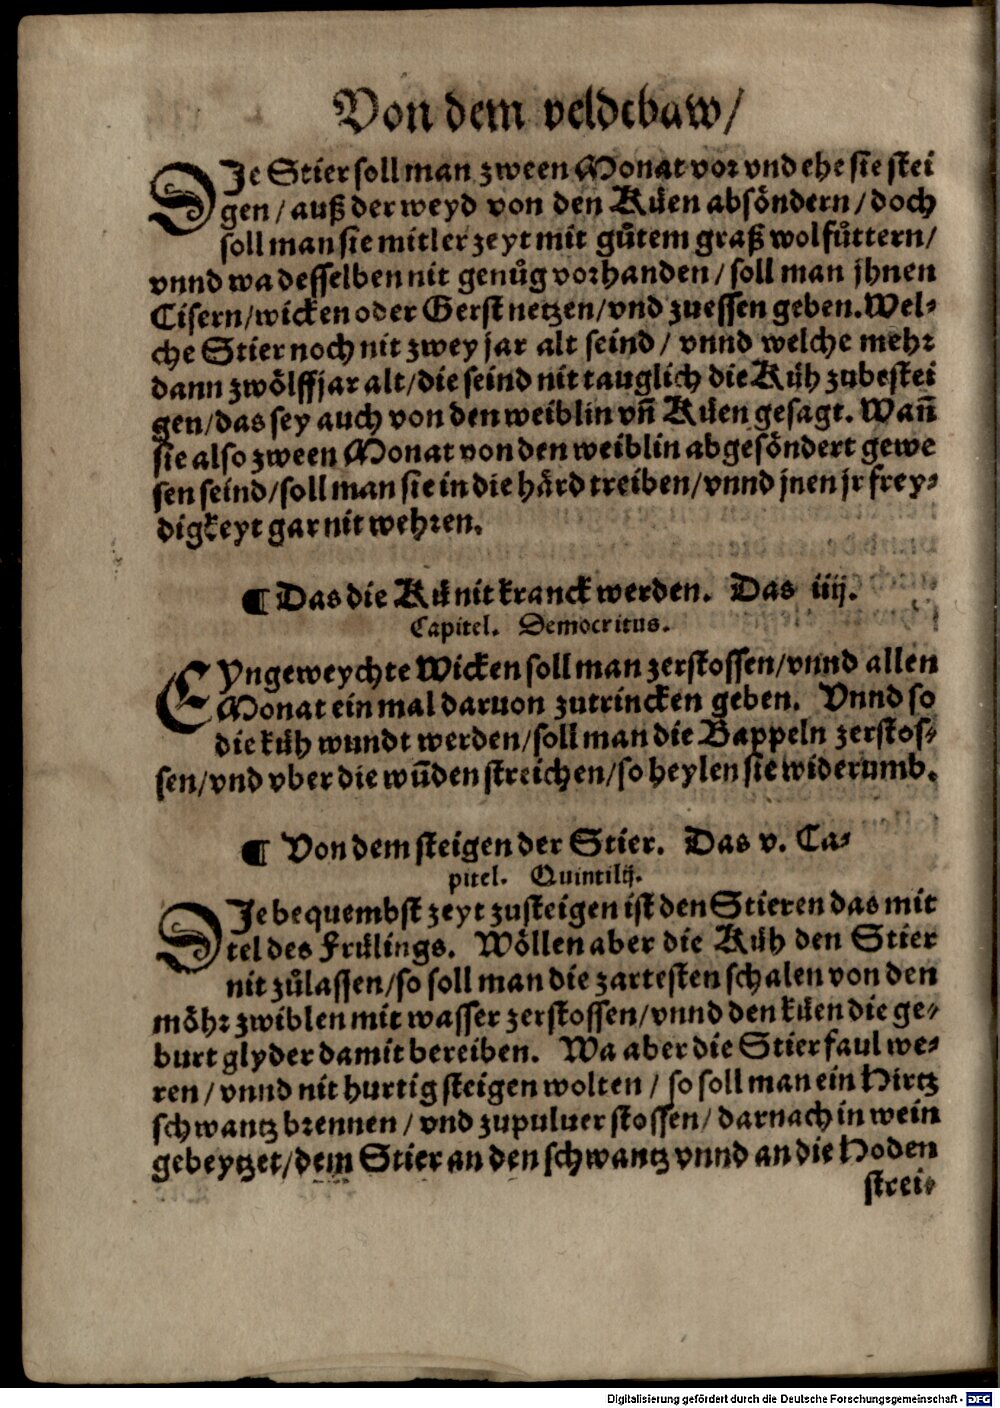 Von dem veldtbaw/
DIe Stier soll man zween Monat vor vnd ehe sie stei
gen/ auß der weyd von den Küen absöndern/ doch
soll man sie mitler zeyt mit gůtem graß wol fůttern/
vnnd wa desselben nit genůg vorhanden/ soll man jhnen
Cisern/ wicken oder Gerst netzen/ vnd zuessen geben. Wel⸗
che Stier noch nit zwey jar alt seind/ vnnd welche mehr
dann zwölff jar alt/ die seind nit tauglich die Küh zubestei
gen/ das sey auch von den weiblin vñ Küen gesagt. Wañ
sie also zween Monat von den weiblin abgesöndert gewe
sen seind/ soll man sie in die härd treiben/ vnnd jnen jr frey⸗
digkeyt gar nit wehren.
¶ Das die Kü nit kranck werden. Das iiij.
Capitel. Democritus.
EYngeweychte Wicken soll man zerstossen/ vnnd allen
Monat ein mal daruon zutrincken geben. Vnnd so
die küh wundt werden/ soll man die Bappeln zerstos⸗
sen/ vnd vber die wũden streichen/ so heylen sie widerumb.
¶ Von dem steigen der Stier. Das v. Ca⸗
pitel. Quintilij.
DIe bequembst zeyt zusteigen ist den Stieren das mit
tel des Frülings. Wöllen aber die Küh den Stier
nit zůlassen/ so soll man die zartesten schalen von den
möhr zwiblen mit wasser zerstossen/ vnnd den küen die ge⸗
burt glyder damit bereiben. Wa aber die Stier faul we⸗
ren/ vnnd nit hurtig steigen wolten/ so soll man ein Hirtz
schwantz brennen/ vnd zupuluer stossen/ darnach in wein
gebeytzet/ dem Stier an den schwantz vnnd an die Hoden
strei⸗
Digitalisierung gefördert durch die Deutsche Forschungsgemeinschaft - DFG